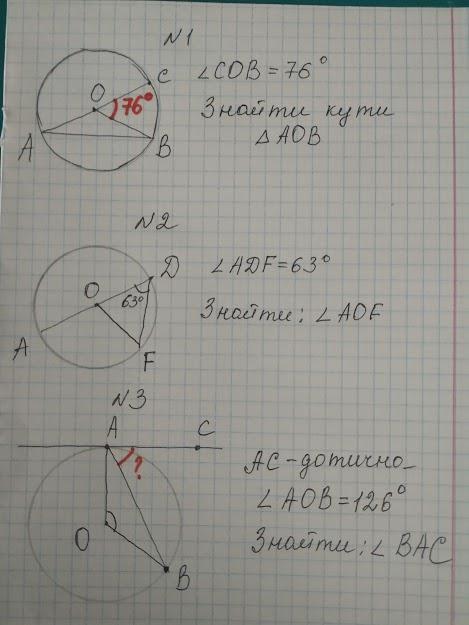 N1
C
O
76°
A
B
∠COB = 76°
Знайти кути
△ AOB
N2
D
O
63°
A
F
∠ADF = 63°
Знайти: ∠AOF
N3
A
C
?
O
B
AC - дотична
∠AOB = 126°
Знайти: ∠BAC